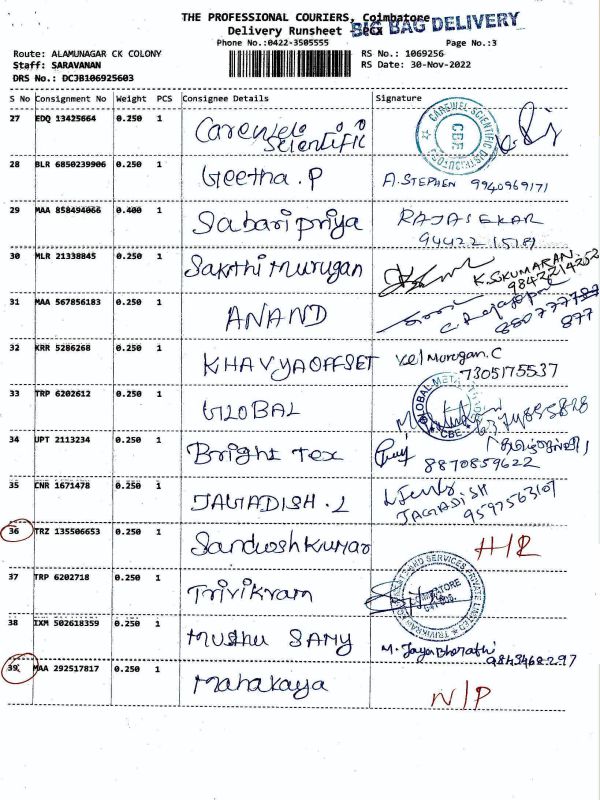 THE PROFESSIONAL COURIERS, Coimbatore
BIG BAG DELIVERY
Delivery Runsheet
Phone No.:0422-3505555 Page No.:3
Route: ALAMUNAGAR CK COLONY RS No.: 1069256
Staff: SARAVANAN RS Date: 30-Nov-2022
DRS No.: DCJB106925603
S No Consignment No Weight PCS Consignee Details Signature
27 EDQ 13425664 0.250 1 Carewel Scientific CAREWEL SCIENTIFIC DISTRIBUTORS CBE
28 BLR 6850239906 0.250 1 Geetha.P A.STEPHEN 9940969171
29 MAA 858494066 0.400 1 Sabari priya RAJASEKAR
30 MLR 21338845 0.250 1 Sakthi Murugan K.S.KUMARAN
9842214252
31 MAA 567856183 0.250 1 ANAND
877
32 KRR 5286268 0.250 1 KHAVYAOFFSET Vel Murogan.C
7305175537
33 TRP 6202612 0.250 1 GLOBAL GLOBAL CBE
34 UPT 2113234 0.250 1 Bright Tex 8870859622
35 CNR 1671478 0.250 1 JAGADISH.L JAGADISH 9597563107
36 TRZ 135506653 0.250 1 Santhosh Kumar
37 TRP 6202718 0.250 1 Trivikram AND SERVICES PRIVATE LIMITED COIMBATORE
38 IXM 502618359 0.250 1 Muthu SAMY M. JayaBharathi
9843468297
39 MAA 292517817 0.250 1 Mahakaya N/P